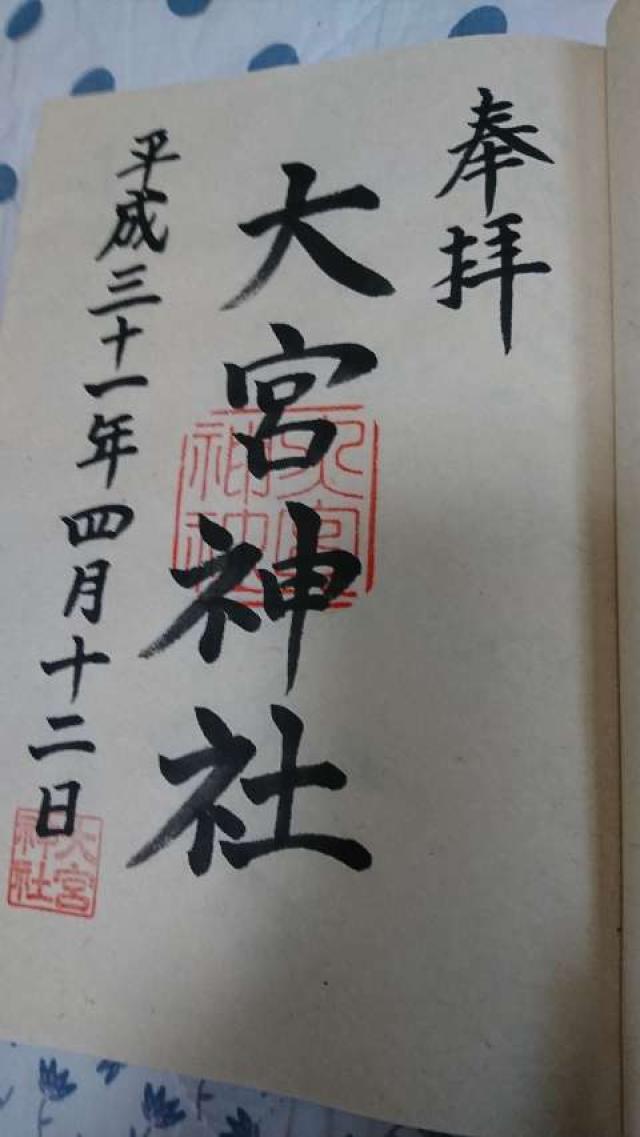 奉拝
大宮神社
大宮神社
平成三十一年四月十二日
大宮神社